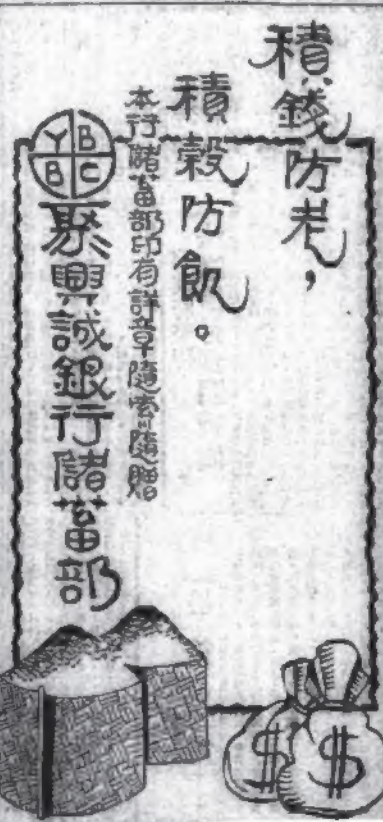 積錢防老，
積穀防飢。
本行儲蓄部印有詳章隨索隨贈
YBBC
聚興誠銀行儲蓄部
$
$